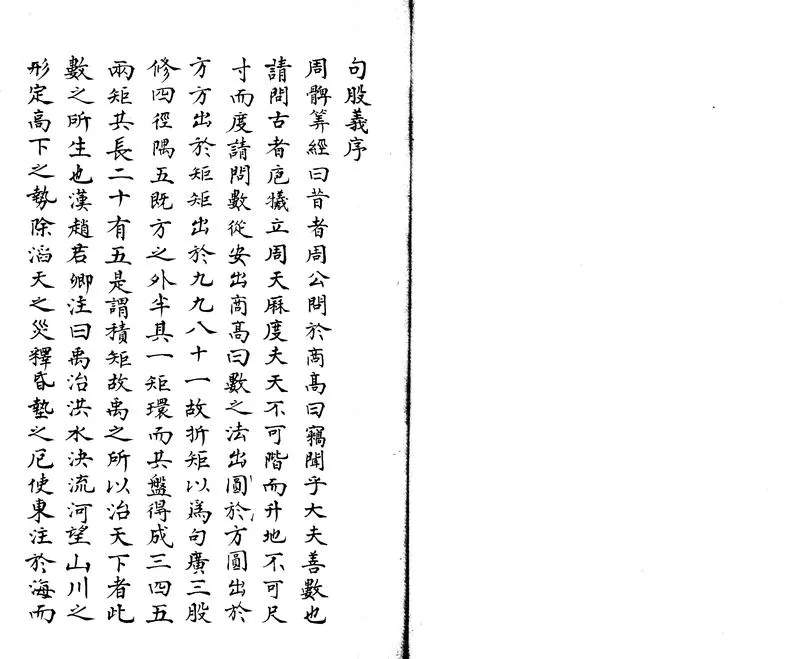 句股義序
周髀筭經曰昔者周公問於商髙曰竊聞乎大夫善數也
請問古者庖犧立周天厤度夫天不可階而升地不可尺
寸而度請問數從安出商髙曰數之法出圓於方圓出於
方方出於矩矩出於九九八十一故折矩以爲句廣三股
修四徑隅五既方之外半其一矩環而共盤得成三四五
兩矩共長二十有五是謂積矩故禹之所以治天下者此
數之所生也漢趙君卿注曰禹治洪水決流河望山川之
形定高下之勢除滔天之災釋昏墊之厄使東注於海而